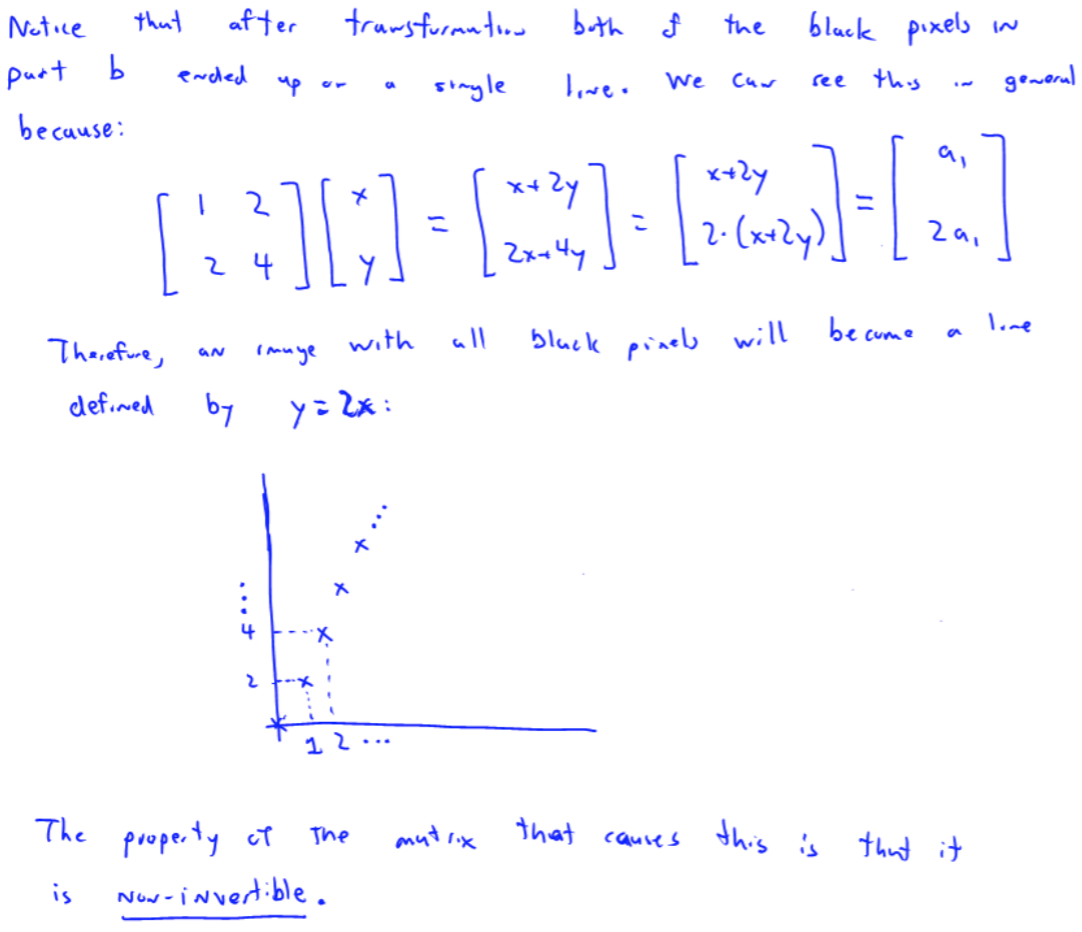 Notice that after transformation both of the black pixels in
part b ended up on a single line. We can see this in general
because:
[1 2; 2 4] [x; y] = [x+2y; 2x+4y] = [x+2y; 2·(x+2y)] = [a₁; 2a₁]
Therefore, an image with all black pixels will become a line
defined by y=2x:
⋮
4
2
1 2 ...
The property of the matrix that causes this is that it
is non-invertible.